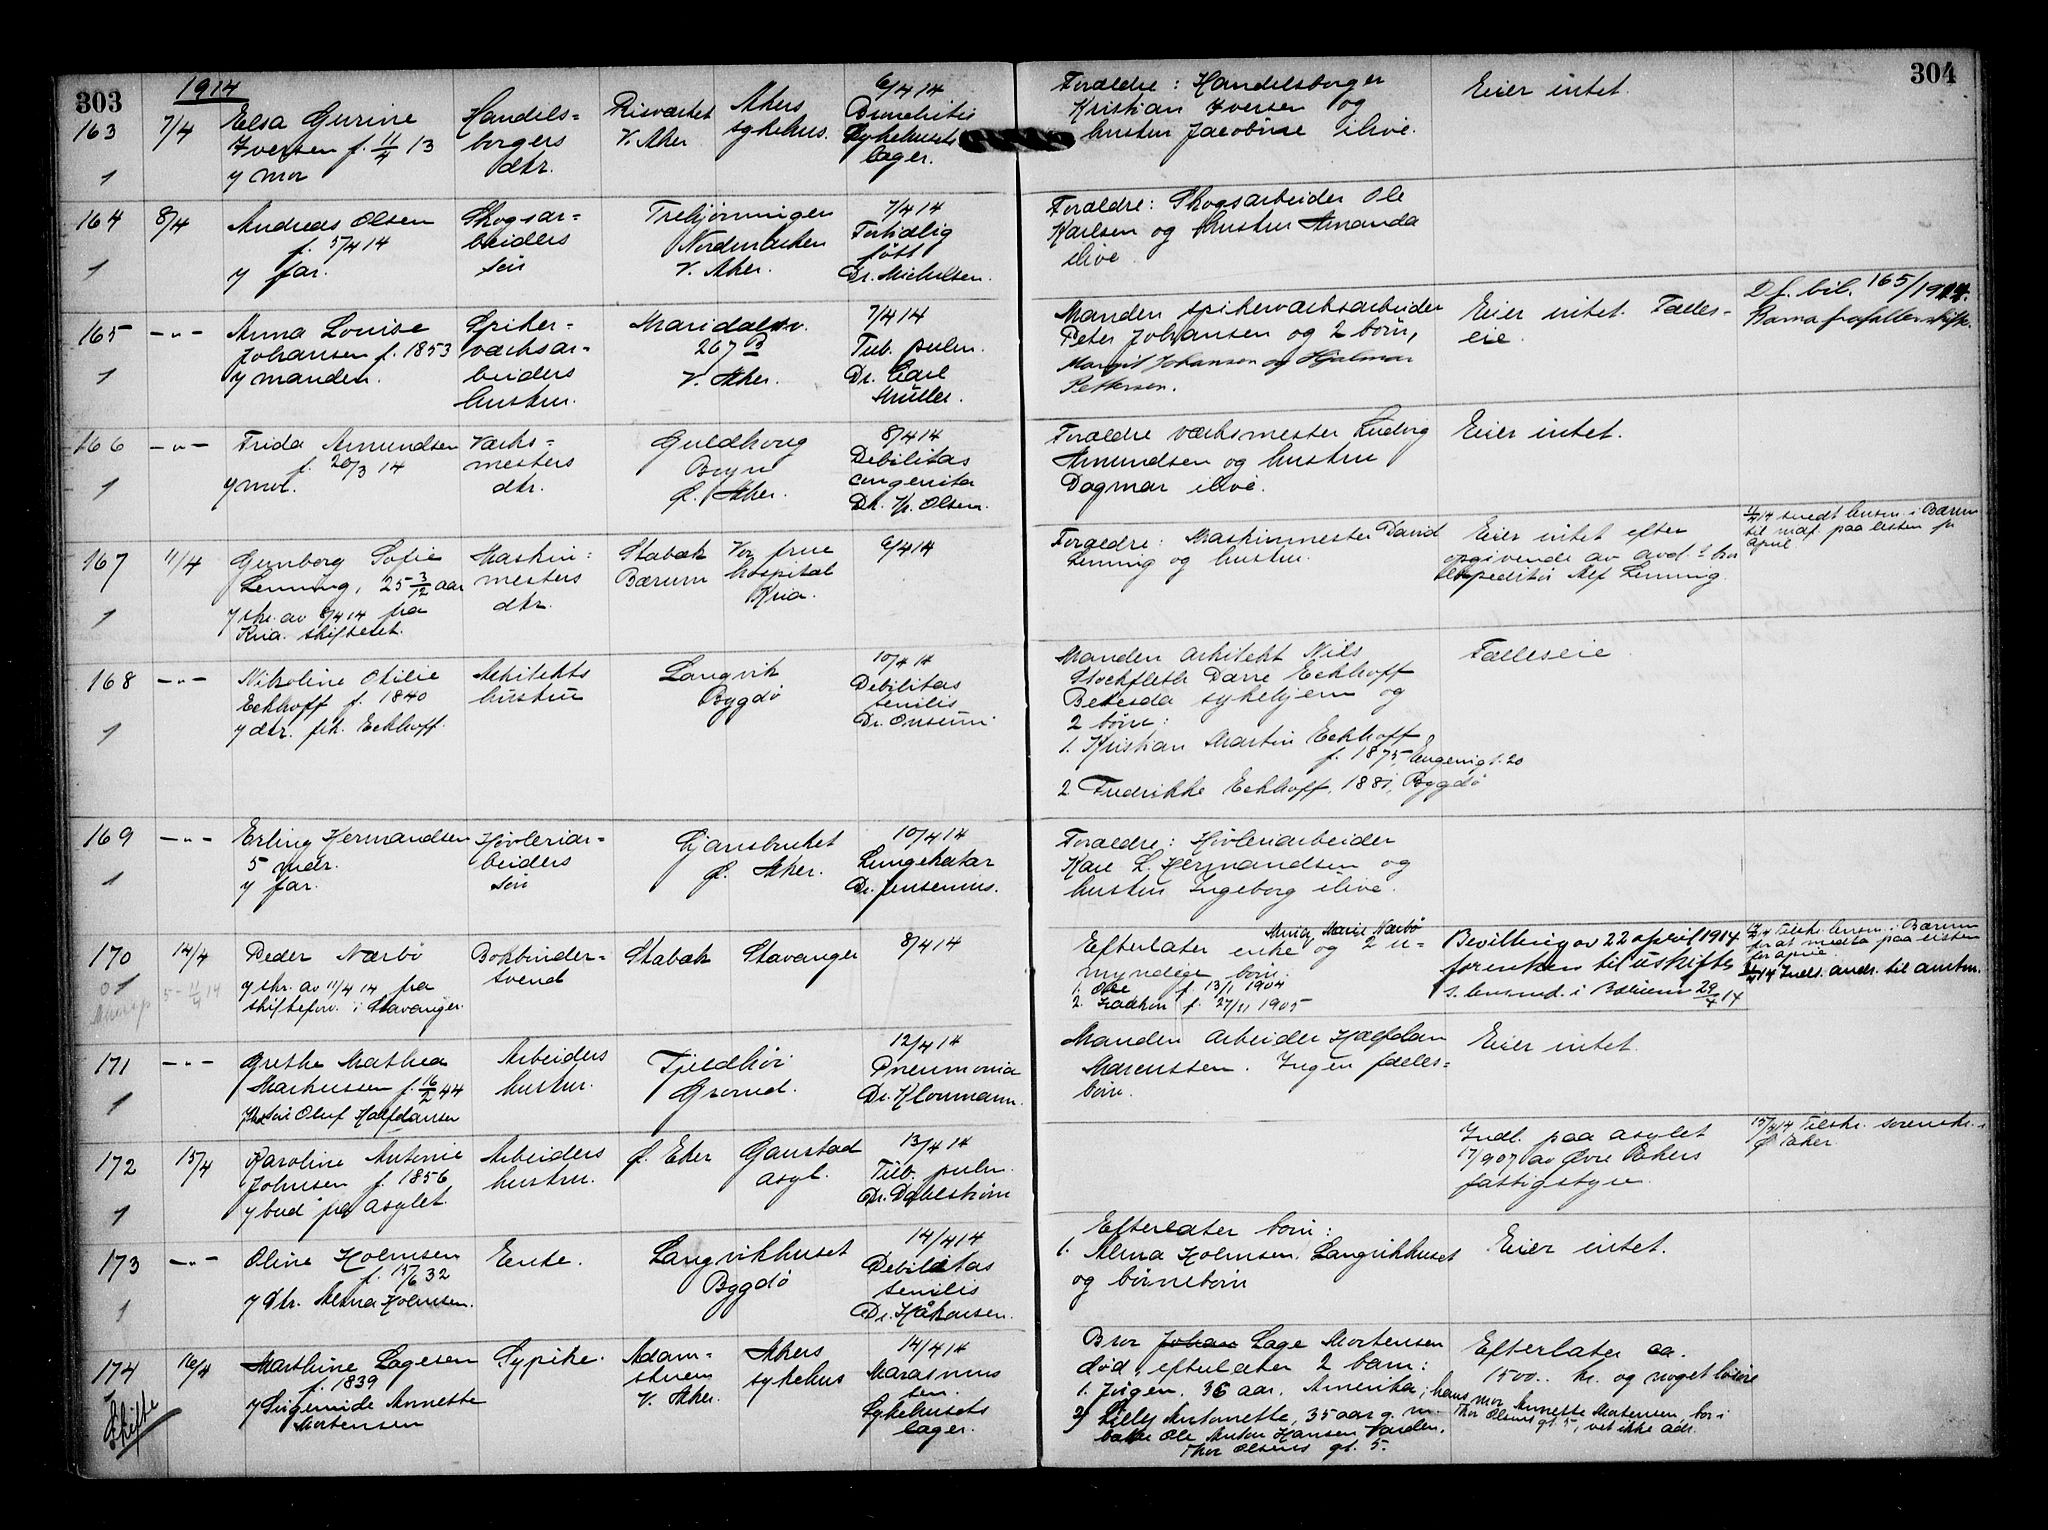 303
1914
163
7/4
Elsa Gurine
Iversen f. 11/4 13
y mor
Handels=
borgers
dtr.
V. Aker
Akers
sykehus.
6/4 14
Sykehusets
læger.
1
164
8/4
Andreas Olsen
f. 5/4 14
y far.
Skogsar=
beiders
søn
Nordmarken
V. Aker.
7/4 14
Fortidlig
født
Dr. Michelsen.
1
165
-"-
Anna Louise
Johansen f. 1853
y manden.
Spiker=
værksar=
beiders
hustru.
Maridalsv.
267 B
V. Aker.
7/4 14
Tub. pulm.
Dr. Carl
Müller.
1
166
-"-
Frida Amundsen
f. 20/3 14
y mor.
Værks=
mesters
dtr.
Guldhoug
Bryn
Ø. Aker.
8/4 14
Debilitas
congenita
Dr. Kr. Olsen.
1
167
11/4
Gunborg Sofie
Lenning, 25 3/12 aar
y skr. av 8/4 14 fra
Kria. skifteret.
Maskin=
mesters
dtr.
Stabæk
Bærum
Vor frue
hospital
Kria.
6/4 14
1
168
-"-
Nikoline Otilie
Eckhoff f. 1840
y dtr. frk. Eckhoff.
Arkitekts
hustru
Langvik
Bygdø
10/4 14
Debilitas
senilis
Dr. Onsum
1
169
-"-
Erling Hermandsen
5 mdr.
y far.
Høvleriar=
beiders
søn
Ljansbruket
Ø. Aker.
10/4 14
Lungekatar
Dr. Jensenius.
1
170
14/4
Peder Nærbø
y skr. av 11/4 14 fra
skifteforv. i Stavanger.
Bokbinder=
svend
Stabæk
Stavanger
8/4 14
171
-"-
Grethe Mathea
Markussen f. 16/2 44
Oluf Halfdansen
Arbeiders
hustru.
Fjeldhøi
Grorud.
12/4 14
Pneumonia
Dr. Klonmann.
1
172
15/4
Karoline Antonie
Johnsen f. 1856
y bud fra asylet
Arbeiders
hustru.
Ø. Eker
Gaustad
asyl.
13/4 14
Tub. pulm.
Dr. Dahlstrøm
1
173
-"-
Oline Holmsen
f. 15/6 32
y dtr. Alma Holmsen.
Enke.
Langvikhuset
Bygdø
14/4 14
Debilitas
senilis
Dr. Håkonsen.
1
174
16/4
Marthine Lagesen
f. 1839
Annette
Mortensen
Sypike.
Adam=
stuen
V. Aker.
Akers
sykehus
14/4 14
Marasmus
sen.
Sykehusets
læger.
Skifte
304
Forældre: Handelsborger
Kristian Iversen og
hustru Jacobine ilive.
Eier intet.
Forældre: Skogsarbeider Ole
Karlsen og hustru Amanda
ilive
Manden spikerværksarbeider
Peter Johansen og 2 børn,
Margit Johanson og Hjalmar
Pettersen.
Eier intet. Fælles=
eie.
D.f. bil. 165/1914.
Forældre værksmester Ludvig
Amundsen og hustru
Dagmar ilive.
Eier intet.
Forældre: Maskinmester David
Lenning og hustru.
Eier intet efter
opgivende av avd.s bror
ekspeditør Alf Lenning.
11/4 14 sendt lensm. i Bærum
til indf. paa listen for
april
Manden arkitekt Niels
Stockfleth Darre Eckhoff
Betesda sykehjem og
2 børn:
1. Kristian Martin Eckhoff
f. 1875, Eugenigt. 20
2 Fredrikke Eckhoff, 1881, Bygdø
Fælleseie
Forældre: Høvleriarbeider
Karl L. Hermandsen og
hustru Ingeborg ilive.
Efterlater enke Marie Nærbø og 2 u=
myndige børn.
1. Ole f. 13/1 1904
2. Haakon f. 27/11 1905
Bevilling av 22 april 1914
for enken til uskifte
s. lensmd. i Bærum 29/4 14
Tilskr. lensm. i Bærum
for at medta paa listen
for april.
Manden arbeider Halfdan
Marcussen. Ingen fælles=
børn.
Eier intet.
Indl. paa asylet
av Øvre Ekers
fattigstyre.
15/4 14 Tilskr. sorenskr. i
Ø Eker.
Efterlater børn:
1. Alma Holmsen. Langvikhuset
og børnebørn
Eier intet.
Bror Johan Lage Mortensen
død, efterlater 2 barn:
1. Jørgen. 36 aar. Amerika; hans mor Annette Mortensen, bor i
Thor Olsens gt. 5, vet ikke adr.
2) Antonette, 35 aar g. m.
Ole Anton Hansen Varden,
Thor Olsens gt. 5.
Efterlater ca.
1500.. kr. og noget løsøre